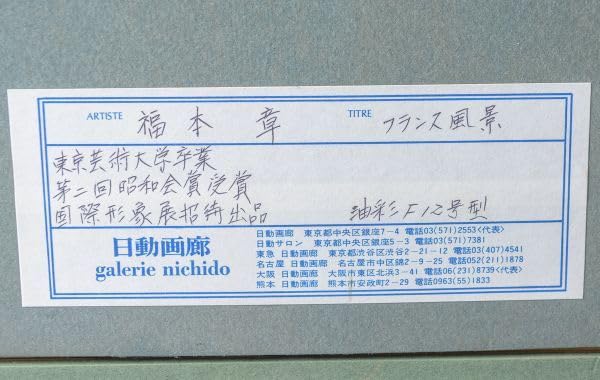 ARTISTE 福本 章 TITRE フランス風景
東京芸術大学卒業
第二回昭和会賞受賞
国際形象展招待出品 油彩F12号型
日動画廊
galerie nichido
日動画廊 東京都中央区銀座7-4 電話03(571)2553<代表>
日動サロン 東京都中央区銀座5-3 電話03(571)7381
東急 日動画廊 東京都渋谷区渋谷2-21-12 電話03(407)4541
名古屋 日動画廊 名古屋市中区錦2-9-25 電話052(211)1878
大阪 日動画廊 大阪市東区北浜3-41 電話06(231)8739<代表>
熊本 日動画廊 熊本市安政町2-29 電話0963(55)1833